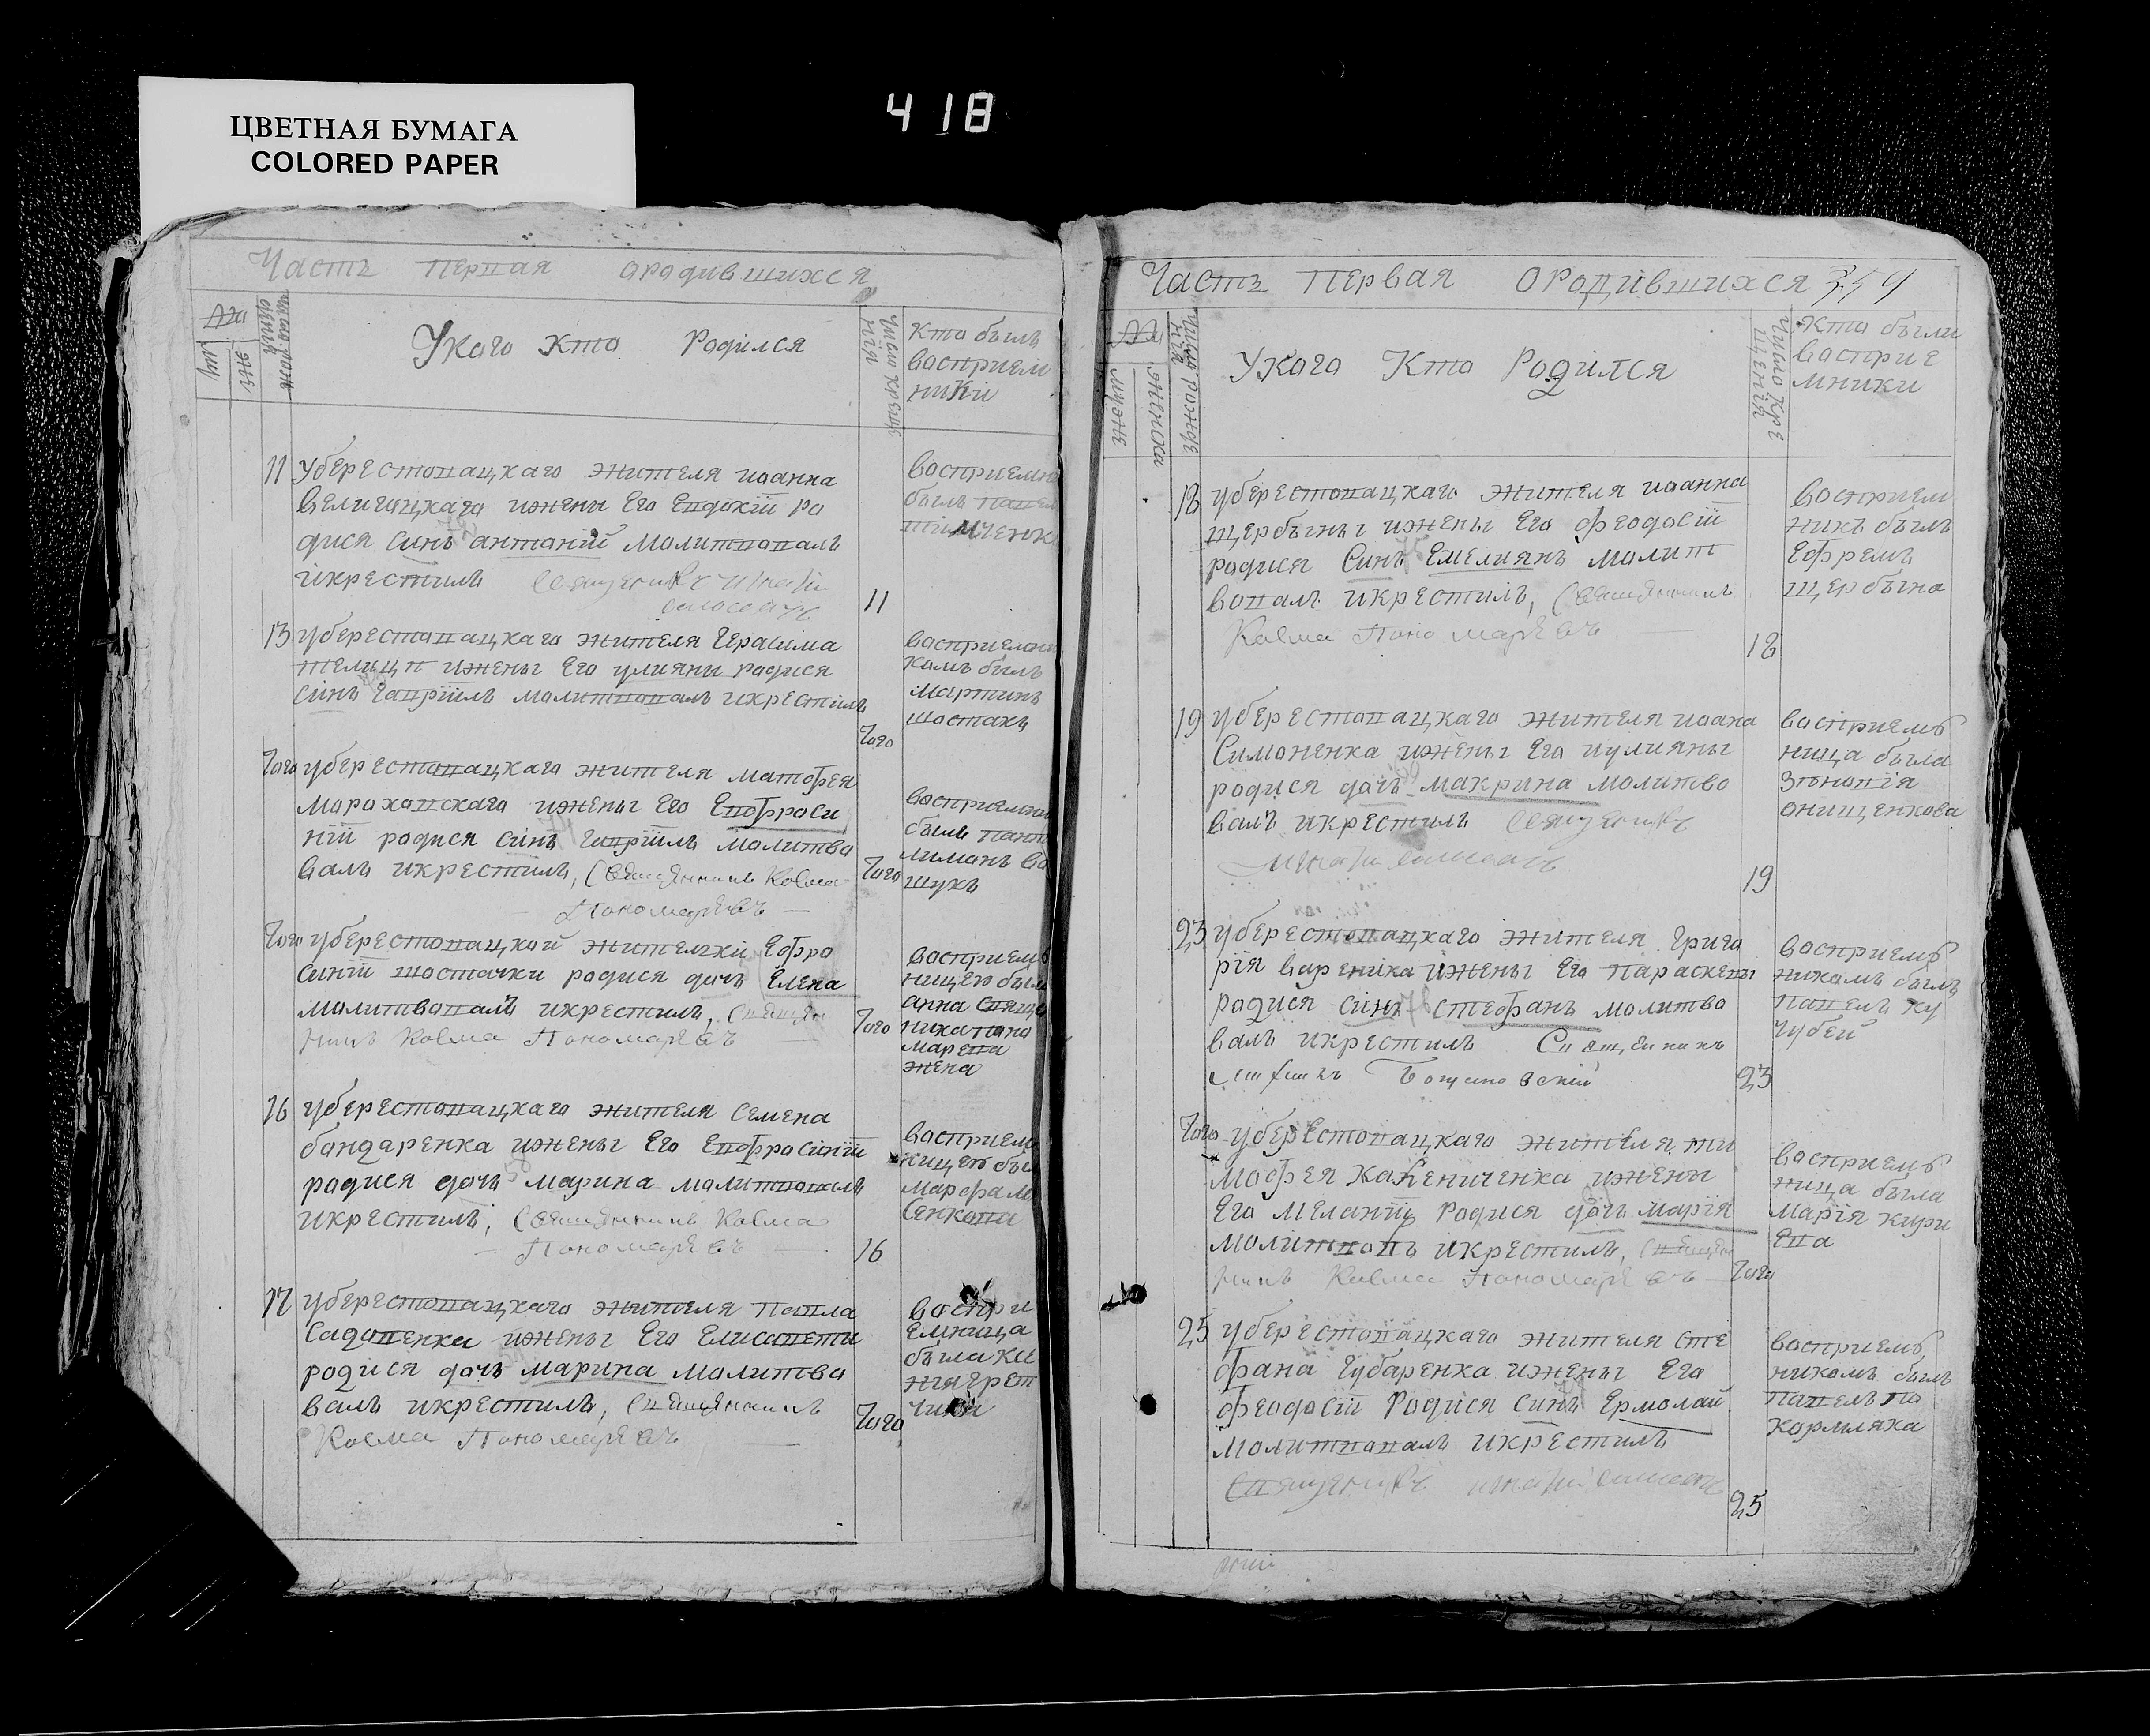 ЦВЕТНАЯ БУМАГА
COLORED PAPER
418
Часть первая ородившихся
Укого кто Родился
Число креще
ния
кто былъ
восприем
ники
11 Уберестовацкаго жителя иоанна
величацкаго ижены Его Евдокіи ро
дися синъ антоній молитвовалъ
икрестилъ
11
восприемни
былъ павел
13 уберестовацкаго жителя Герасима
телици ижены Его улияны родися
синъ Гавріилъ молитвовалъ икрестилъ
Того
восприемни
комъ былъ
мартинъ
шостакъ
Того уберестовацкаго жителя матофея
мороховскаго ижены Его Евофроси
ніи родися синъ Гавріилъ молитво
валъ икрестилъ, Священникъ Косма
Пономаревъ
Того
былъ
шукъ
Того уберестовацкой жителки Ефро
синіи шостачки родися дочъ Елена
молитвовалъ икрестилъ, Священ
никъ Косма Пономаревъ
Того
восприемъ
ницею была
анна свяще
ника поно
марева
жена
16 уберестовацкаго жителя Семена
бондаренка ижены Его Евофросиніи
родися дочъ марина молитвовалъ
икрестилъ, Священникъ Косма
Пономаревъ
16
восприем
ницею был
марфа
17 уберестовацкаго жителя павла
Садовенка ижены Его Елисаветы
родися дочъ марина молитво
валъ икрестилъ, Священникъ
Косма Пономаревъ
Того
воспри
емница
была
Часть первая ородившихся
Укого Кто Родился
мужеск
женска
Число рожде
ния
Число кре
щения
Кто были
восприе
мники
18 уберестовацкаго жителя иоанна
щербыны ижены Его феодосіи
родися Синъ Емелиянъ молит
вовалъ икрестилъ, Священникъ
Косма Пономаревъ
18
восприем
никъ былъ
Ефремъ
щербына
19 уберестовацкаго жителя иоана
Симоненка ижены Его иулияны
родися дочъ макрина молитво
валъ икрестилъ Священикъ
19
восприемъ
ница была
Зѣновія
онищенкова
23 уберестовацкаго жителя Григо
рія вареника ижены Его параскевы
родися синъ стефанъ молитво
валъ икрестилъ Священникъ
23
восприемъ
никомъ былъ
павелъ ку
чубей
Того уберестовацкаго жителя ти
мофея ижены
Его меланіи родися дочъ марія
молитвовалъ икрестилъ, Священ
никъ Косма Пономаревъ Того
восприемъ
ница была
марія кири
ева
25 уберестовацкаго жителя сте
фана Губаренка ижены Его
феодосіи Родися синъ Ермолай
молитвовалъ икрестилъ
25
восприемъ
никомъ былъ
павелъ по
кормляка